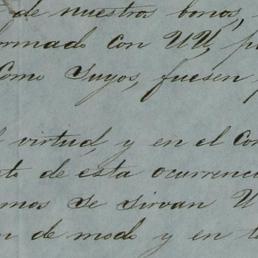 de nuestros bonos,
formado con UU, p
Como Suyos, fuesen
virtud, y en el Con
de esta ocurrenci
mos se sirvan U
de modo y en t